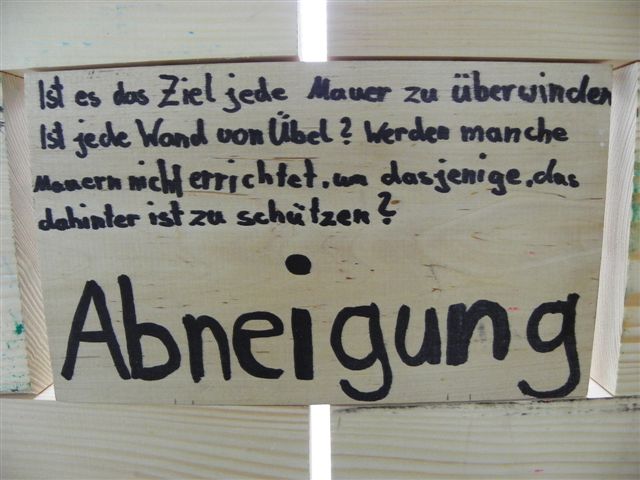 Ist es das Ziel jede Mauer zu überwinden
Ist jede Wand von Übel? Werden manche
Mauern nicht errichtet, um dasjenige, das
dahinter ist zu schützen?
Abneigung